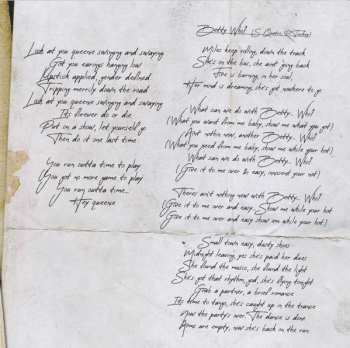 Look at you queenie swinging and swaying
Got you earings hanging low
Lipstick applied, gender defined
Tripping merrily down the road
Look at you queenie swinging and swaying
It's forever do or die
Put on a show, let yourself go
Then do it one last time
You run outta time to play
You got no more game to play
You run outta time...
Hey queenie
Betty Who!
Miles keep rolling, down the track
She's in the bar, she aint going back
Fire is burning, in her soul,
Her mind is dreaming, she's got nowhere to go
What can we do with Betty... Who!
(What you want from me baby, show me what you got)
Aint nothin new, another Betty... Who!
(What you need from me baby, show me while your hot)
What can we do with Betty... Who!
(Give it to me over & easy, reverend your not)
Theres ain't nothing new with Betty... Who!
(Give it to me over and easy, Show me while your hot
(Give it to me over and easy show em while your hot)
Small town easy, dusty shoes
Midnight leaving, yes she's paid her dues
She found the music, she found the light
She's got that rhythm, god, she's flying tonight
Grab a partner, a brief romance
Its time to tango, she's caught up in the trance
Now the party's over, The dance is done
Arms are empty, now she's back on the run